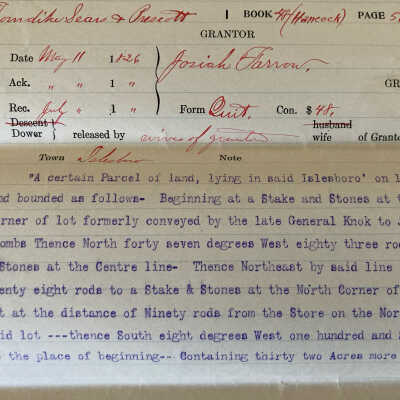 Torndike Sears & Prescott | BOOK 47 (Hancock) PAGE 5
GRANTOR
Date May 11 1826 Josiah Farrow
Ack. " " 1 " GR
Rec. July 1 " Form Quit. Con. $48,
Descent husband
Dower released by wives of grantor wife of Granto
Town Islesboro Note
"A certain Parcel of land, lying in said Islesboro' on l
nd bounded as follows- Beginning at a Stake and Stones at t
orner of lot formerly conveyed by the late General Knok to J
ombs Thence North forty seven degrees West eighty three ro
Stones at the Centre line- Thence Northeast by said line
enty eight rods to a Stake & Stones at the North Corner of
t at the distance of Ninety rods from the Store on the Nor
id lot ---thence South eight degrees West one hundred and
the place of beginning-- Containing thirty two Acres more